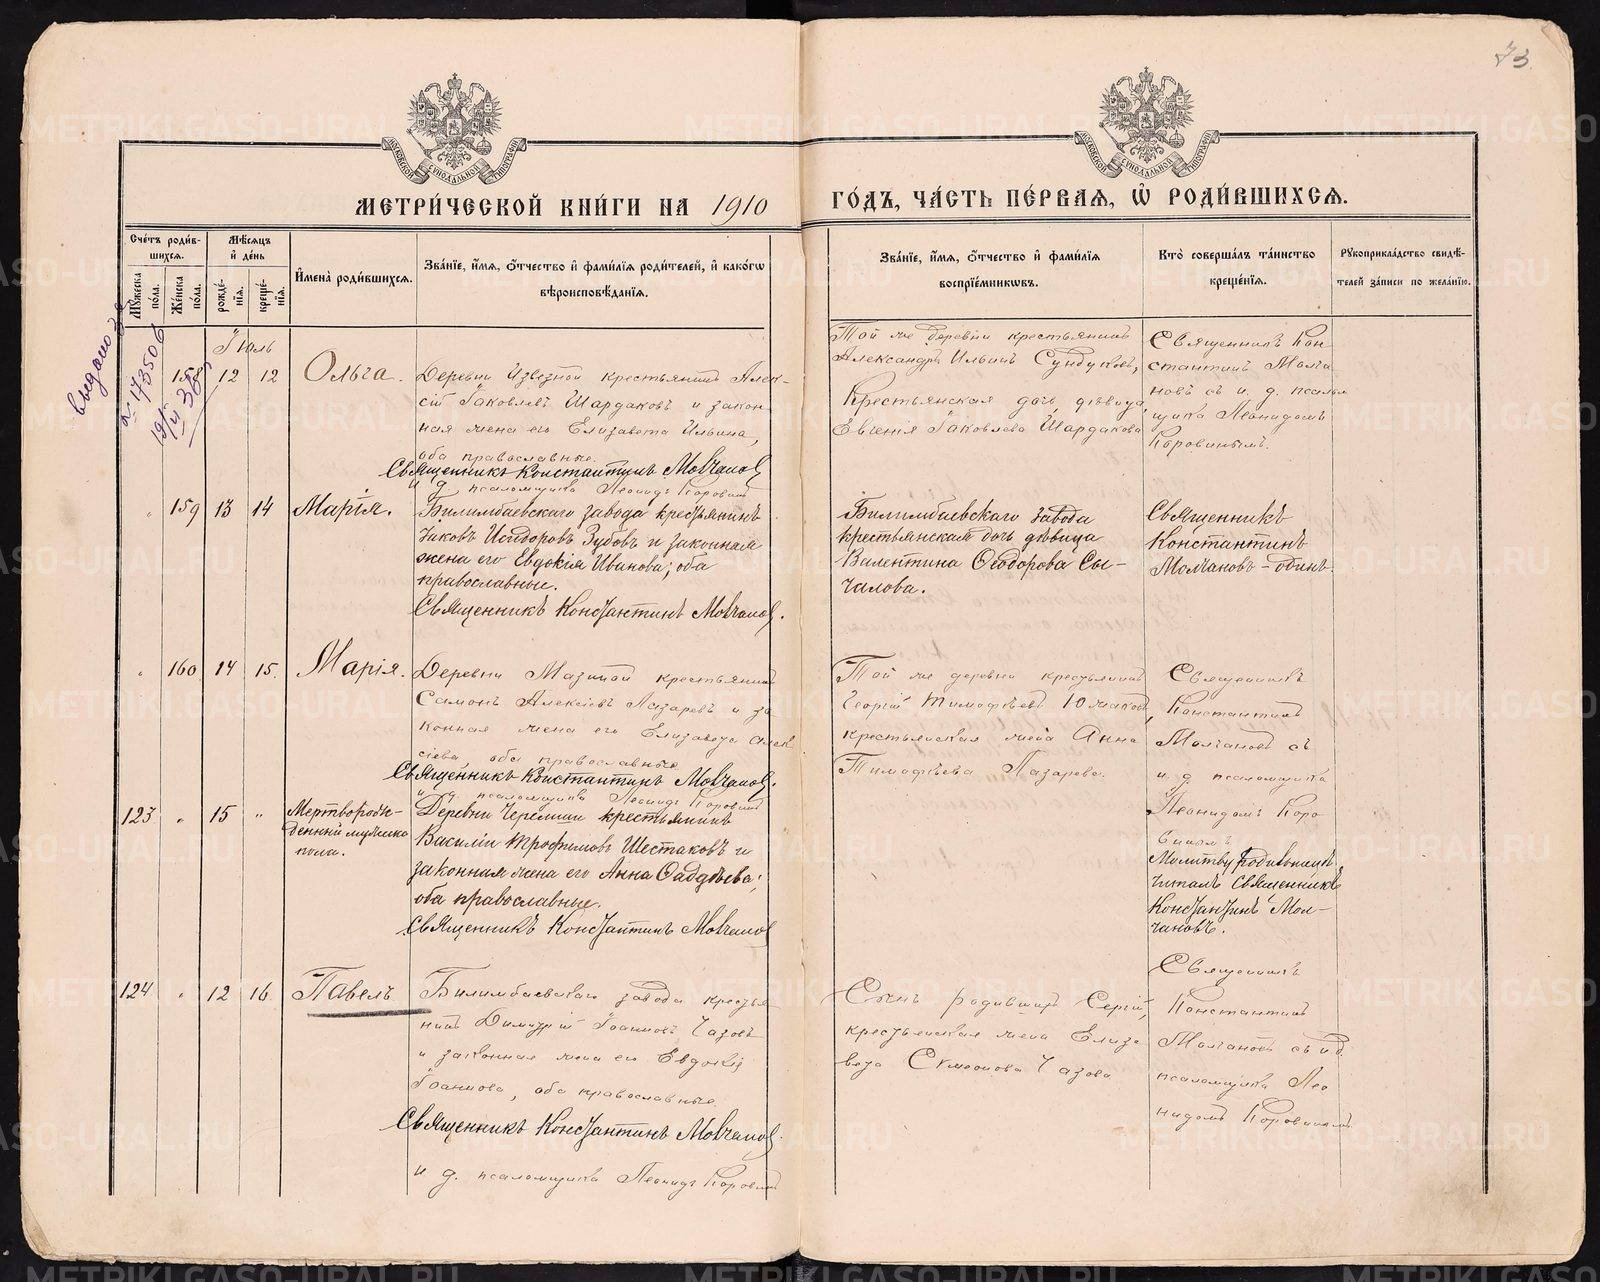 73
МЕТРИ́ЧЕСКОЙ КНИ́ГИ НА 1910 ГО́ДЪ, ЧА́СТЬ ПЕ́РВАЯ, Ѡ҆ РОДИ́ВШИХСЯ.
Сче́тъ роди́вшихся.
Мꙋ́жеска по́ла.
Же́нска по́ла.
Мѣ́сяцъ и҆ де́нь
рожде́нїя.
креще́нїя.
И҆мена̀ роди́вшихся.
Зва́нїе, и҆́мя, ѻ҆́тчество и҆ фами́лїя роди́телей, и҆ како́гѡ
вѣроисповѣ́данїя.
Зва́нїе, и҆́мя, ѻ҆́тчество и҆ фами́лїя
воспрїе́мникѡвъ.
Кто̀ соверша́лъ та́инство
креще́нїя.
Рꙋкоприкла́дство свидѣ́-
телей за́писи по жела́нїю.
выдано за
№ 173506
Іюль
158 12 12 Ольга.
Деревни Извезной крестьянинъ Алек-
сій Іаковлевъ Шардаковъ и закон-
ная жена его Елизавета Ильина,
оба православные.
Священникъ Константинъ Молчановъ
и д. псаломщика Леонидъ Коровинъ
Той же деревни крестьянинъ
Александръ Ильинъ Сундуковъ,
Крестьянская дочь дѣвица
Евгенія Іаковлева Шардакова
Священникъ Кон
стантинъ Молча
новъ съ и. д. псалом
щика Леонидомъ
Коровинымъ.
" 159 13 14 Марія.
Билимбаевскаго завода крестьянинъ
Іаковъ Исидоровъ Зубовъ и законная
жена его Евдокія Иванова; оба
православные.
Священникъ Константинъ Молчановъ.
Билимбаевскаго завода
крестьянская дочь дѣвица
Валентина Ѳеодорова Сы-
чалова.
Священникъ
Константинъ
Молчановъ - одинъ.
" 160 14 15. Марія.
Деревни Мазиной крестьянинъ
Самонъ Алексіевъ Лазаревъ и за
конная жена его Елизавета Алек
сіева, оба православные
Священникъ Константинъ Молчановъ.
и д. псаломщика Леонидъ Коровинъ
Той же деревни крестьянинъ
Георгій Тимофѣевъ Южаковъ,
крестьянская жена Анна
Тимофѣева Лазарева.
Священникъ
Константинъ
Молчановъ съ
и д псаломщика
Леонидомъ Коро
винымъ
123 " 15 " Мертворож-
денный мужска
пола.
Деревни Черемши крестьянинъ
Василій Трофимовъ Шестаковъ и
законная жена его Анна Ѳаддѣева;
оба православные.
Священникъ Константинъ Молчановъ
Молитву родильницѣ
читалъ Священникъ
Константинъ Мол-
чановъ.
124 " 12 16 Павелъ
Билимбаевскаго завода крестья
нинъ Димитрій Іоанновъ Чазовъ
и законная жена его Евдокія
Іоаннова, оба православные.
Священникъ Константинъ Молчановъ.
и д. псаломщика Леонидъ Коровинъ
Сынъ родившихъ Сергій,
крестьянская жена Елиза
вета Симеонова Чазова
Священникъ
Константинъ
Молчановъ съ и д.
псаломщика Лео
нидомъ Коровинымъ
METRIKI.GASO-URAL.RU